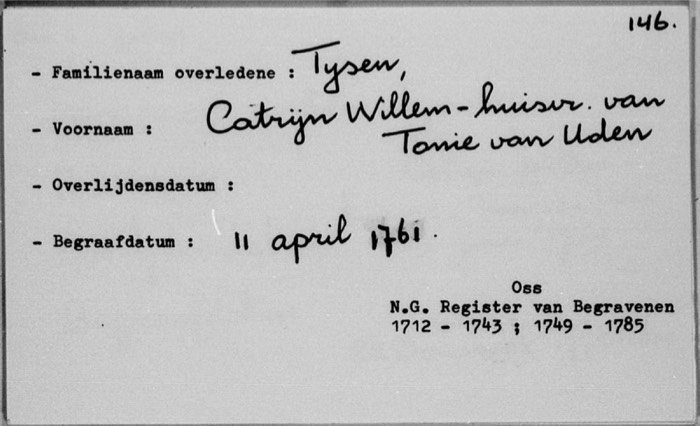 146.
- Familienaam overledene : Tysen,
- Voornaam : Catrijn Willem - huisvr. van
Tonie van Uden
- Overlijdensdatum :
- Begraafdatum : 11 april 1761.
Oss
N.G. Register van Begravenen
1712 - 1743 ; 1749 - 1785